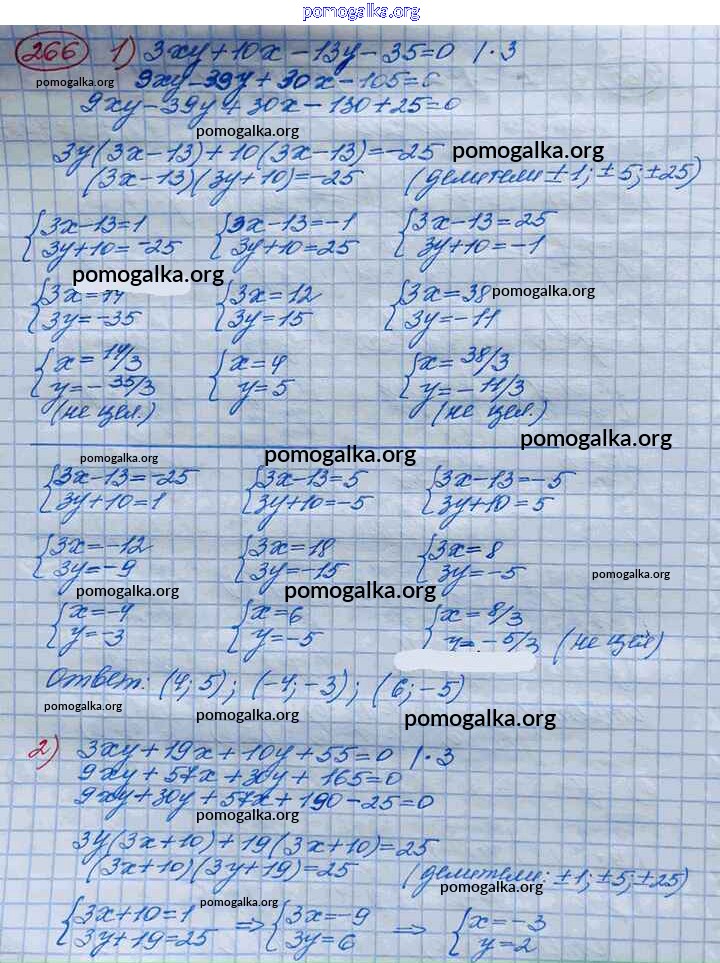 pomogalka.org
266 1) 3xy+10x-13y-35=0 |·3
9xy-39y+30x-105=0
pomogalka.org
9xy-39y+30x-130+25=0
pomogalka.org
3y(3x-13)+10(3x-13)=-25 pomogalka.org
(3x-13)(3y+10)=-25 (делители ±1; ±5; ±25)
{3x-13=1 {3x-13=-1 {3x-13=25
{3y+10=-25 {3y+10=25 {3y+10=-1
pomogalka.org
{3x=14 {3x=12 {3x=38 pomogalka.org
{3y=-35 {3y=15 {3y=-11
{x=14/3 {x=4 {x=38/3
{y=-35/3 {y=5 {y=-11/3
(не цел.) (не цел.)
pomogalka.org
pomogalka.org pomogalka.org
{3x-13=-25 {3x-13=5 {3x-13=-5
{3y+10=1 {3y+10=-5 {3y+10=5
{3x=-12 {3x=18 {3x=8
{3y=-9 {3y=-15 {3y=-5
pomogalka.org pomogalka.org pomogalka.org
{x=-4 {x=6 {x=8/3
{y=-3 {y=-5 {y=-5/3 (не цел)
Ответ: (4; 5); (-4; -3); (6; -5)
pomogalka.org pomogalka.org pomogalka.org
2) 3xy+19x+10y+55=0 |·3
9xy+57x+30y+165=0
9xy+30y+57x+190-25=0
pomogalka.org
3y(3x+10)+19(3x+10)=25
(3x+10)(3y+19)=25 (делители: ±1; ±5; ±25)
pomogalka.org
pomogalka.org
{3x+10=1 => {3x=-9 => {x=-3
{3y+19=25 {3y=6 {y=2
pomogalka.org